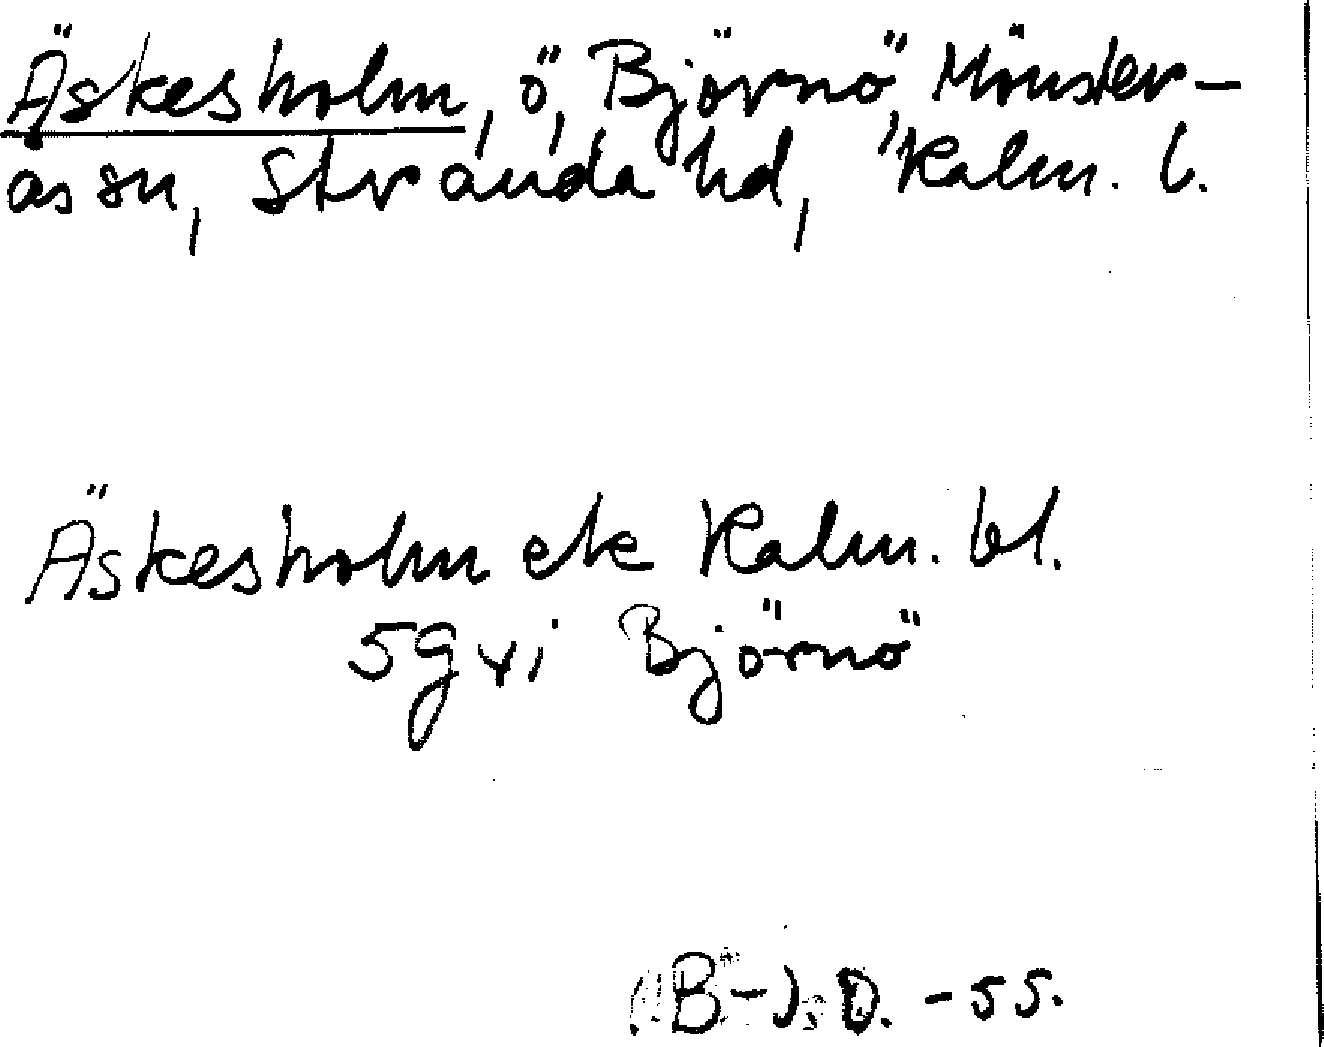 Äskesholm, ö, Björnö, Mönster-
ås sn, Stranda hd, Kalm. l.
Äskesholm ek Kalm. bl.
5g xi Björnö
B-J.D. -55.